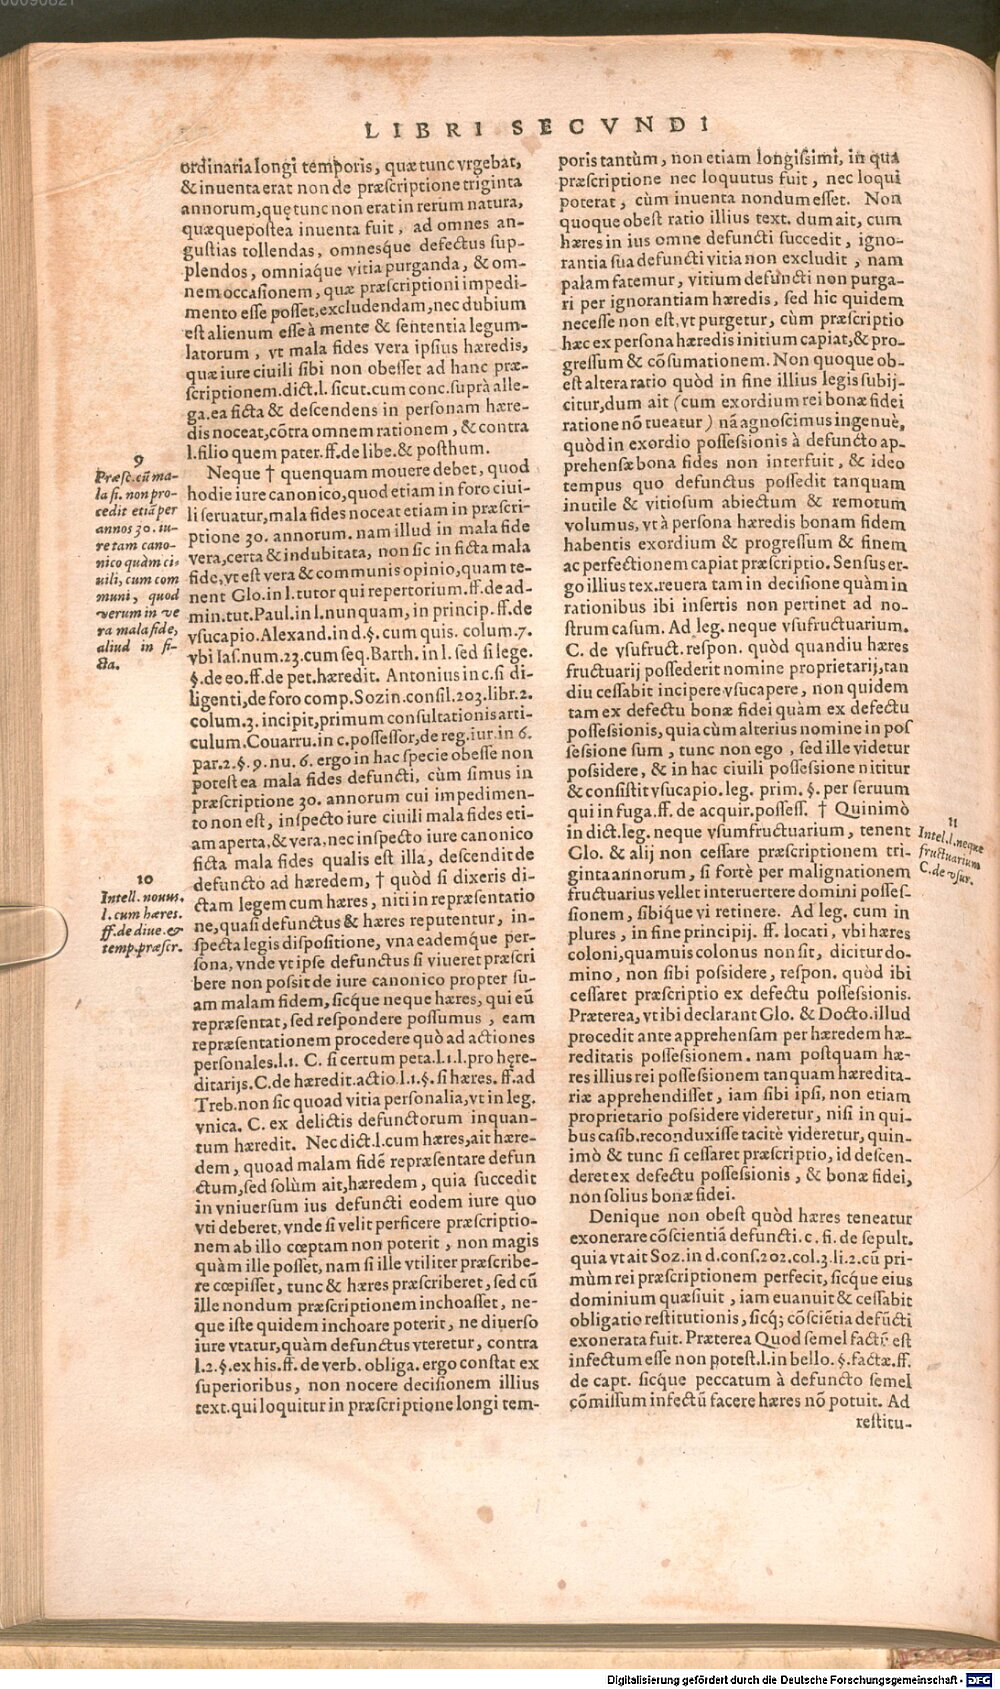 LIBRI SECVNDI
ordinaria longi temporis, quæ tunc vrgebat,
& inuenta erat non de præscriptione triginta
annorum, quę tunc non erat in rerum natura,
quæque postea inuenta fuit, ad omnes an-
gustias tollendas, omnesque defectus sup-
plendos, omniaque vitia purganda, & om-
nem occasionem, quæ præscriptioni impedi-
mento esse posset, excludendam, nec dubium
est alienum esse à mente & sententia legum-
latorum, vt mala fides vera ipsius hæredis,
quæ iure ciuili sibi non obesset ad hanc præ-
scriptionem. dict. l. sicut. cum conc. suprà alle-
ga. ea ficta & descendens in personam hære-
dis noceat, cõtra omnem rationem, & contra
l. filio quem pater. ff. de libe. & posthum.
9
Præsc. cũ ma-
la fi. non pro-
cedit etiã per
annos 30. iu-
re tam cano-
nico quàm ci-
uili, cum com
muni, quod
verum in ve
ra mala fide,
aliud in fi-
cta.
Neque † quenquam mouere debet, quod
hodie iure canonico, quod etiam in foro ciui-
li seruatur, mala fides noceat etiam in præscri-
ptione 30. annorum. nam illud in mala fide
vera, certa & indubitata, non sic in ficta mala
fide, vt est vera & communis opinio, quam te-
nent Glo. in l. tutor qui repertorium. ff. de ad-
min. tut. Paul. in l. nunquam, in princip. ff. de
vsucapio. Alexand. in d. §. cum quis. colum. 7.
vbi Ias. num. 23. cum seq. Barth. in l. sed si lege.
§. de eo. ff. de pet. hæredit. Antonius in c. si di-
ligenti, de foro comp. Sozin. consil. 203. libr. 2.
colum. 3. incipit, primum consultationis arti-
culum. Couarru. in c. possessor, de reg. iur. in 6.
par. 2. §. 9. nu. 6. ergo in hac specie obesse non
potest ea mala fides defuncti, cùm simus in
præscriptione 30. annorum cui impedimen-
to non est, inspecto iure ciuili mala fides eti-
am aperta, & vera, nec inspecto iure canonico
ficta mala fides qualis est illa, descendit de
10
Intell. nouus.
l. cum hæres.
ff. de diue. &
temp. præscr.
defuncto ad hæredem, † quòd si dixeris di-
ctam legem cum hæres, niti in repræsentatio
ne, quasi defunctus & hæres reputentur, in-
specta legis dispositione, vna eademque per-
sona, vnde vt ipse defunctus si viueret præscri
bere non possit de iure canonico propter su-
am malam fidem, sicque neque hæres, qui eũ
repræsentat, sed respondere possumus, eam
repræsentationem procedere quò ad actiones
personales. l. 1. C. si certum peta. l. 1. l. pro hęre-
ditarijs. C. de hæredit. actio. l. 1. §. si hæres. ff. ad
Treb. non sic quoad vitia personalia, vt in leg.
vnica. C. ex delictis defunctorum inquan-
tum hæredit. Nec dict. l. cum hæres, ait hære-
dem, quoad malam fidẽ repræsentare defun
ctum, sed solùm ait, hæredem, quia succedit
in vniuersum ius defuncti eodem iure quo
vti deberet, vnde si velit perficere præscriptio-
nem ab illo cœptam non poterit, non magis
quàm ille posset, nam si ille vtiliter præscribe-
re cœpisset, tunc & hæres præscriberet, sed cũ
ille nondum præscriptionem inchoasset, ne-
que iste quidem inchoare poterit, ne diuerso
iure vtatur, quàm defunctus vteretur, contra
l. 2. §. ex his. ff. de verb. obliga. ergo constat ex
superioribus, non nocere decisionem illius
text. qui loquitur in præscriptione longi tem-
poris tantùm, non etiam longissimi, in qua
præscriptione nec loquutus fuit, nec loqui
poterat, cùm inuenta nondum esset. Non
quoque obest ratio illius text. dum ait, cum
hæres in ius omne defuncti succedit, igno-
rantia sua defuncti vitia non excludit, nam
palam fatemur, vitium defuncti non purga-
ri per ignorantiam hæredis, sed hic quidem
necesse non est, vt purgetur, cùm præscriptio
hæc ex persona hæredis initium capiat, & pro-
gressum & cõsumationem. Non quoque ob-
est altera ratio quòd in fine illius legis subij-
citur, dum ait (cum exordium rei bonæ fidei
ratione nõ tueatur) nã agnoscimus ingenuè,
quòd in exordio possessionis à defuncto ap-
prehensæ bona fides non interfuit, & ideo
tempus quo defunctus possedit tanquam
inutile & vitiosum abiectum & remotum
volumus, vt à persona hæredis bonam fidem
habentis exordium & progressum & finem
ac perfectionem capiat præscriptio. Sensus er-
go illius tex. reuera tam in decisione quàm in
rationibus ibi insertis non pertinet ad no-
strum casum. Ad leg. neque vsufructuarium.
C. de vsufruct. respon. quòd quandiu hæres
fructuarij possederit nomine proprietarij, tan
diu cessabit incipere vsucapere, non quidem
tam ex defectu bonæ fidei quàm ex defectu
possessionis, quia cùm alterius nomine in pos
sessione sum, tunc non ego, sed ille videtur
possidere, & in hac ciuili possessione nititur
& consistit vsucapio. leg. prim. §. per seruum
qui in fuga. ff. de acquir. possess. † Quinimò
11
Intel. l. neque
fructuarium
C. de vsur.
in dict. leg. neque vsumfructuarium, tenent
Glo. & alij non cessare præscriptionem tri-
ginta annorum, si fortè per malignationem
fructuarius vellet interuertere domini posses-
sionem, sibique vi retinere. Ad leg. cum in
plures, in fine principij. ff. locati, vbi hæres
coloni, quamuis colonus non sit, dicitur do-
mino, non sibi possidere, respon. quòd ibi
cessaret præscriptio ex defectu possessionis.
Præterea, vt ibi declarant Glo. & Docto. illud
procedit ante apprehensam per hæredem hæ-
reditatis possessionem. nam postquam hæ-
res illius rei possessionem tanquam hæredita-
riæ apprehendisset, iam sibi ipsi, non etiam
proprietario possidere videretur, nisi in qui-
bus casib. reconduxisse tacitè videretur, quin-
imò & tunc si cessaret præscriptio, id descen-
deret ex defectu possessionis, & bonæ fidei,
non solius bonæ fidei.
Denique non obest quòd hæres teneatur
exonerare cõscientiã defuncti. c. fi. de sepult.
quia vt ait Soz. in d. cons. 202. col. 3. li. 2. cũ pri-
mùm rei præscriptionem perfecit, sicque eius
dominium quæsiuit, iam euanuit & cessabit
obligatio restitutionis, sicq; cõsciẽtia defũcti
exonerata fuit. Præterea Quod semel factũ est
infectum esse non potest. l. in bello. §. factæ. ff.
de capt. sicque peccatum à defuncto semel
cõmissum infectũ facere hæres nõ potuit. Ad
restitu-
Digitalisierung gefördert durch die Deutsche Forschungsgemeinschaft - DFG